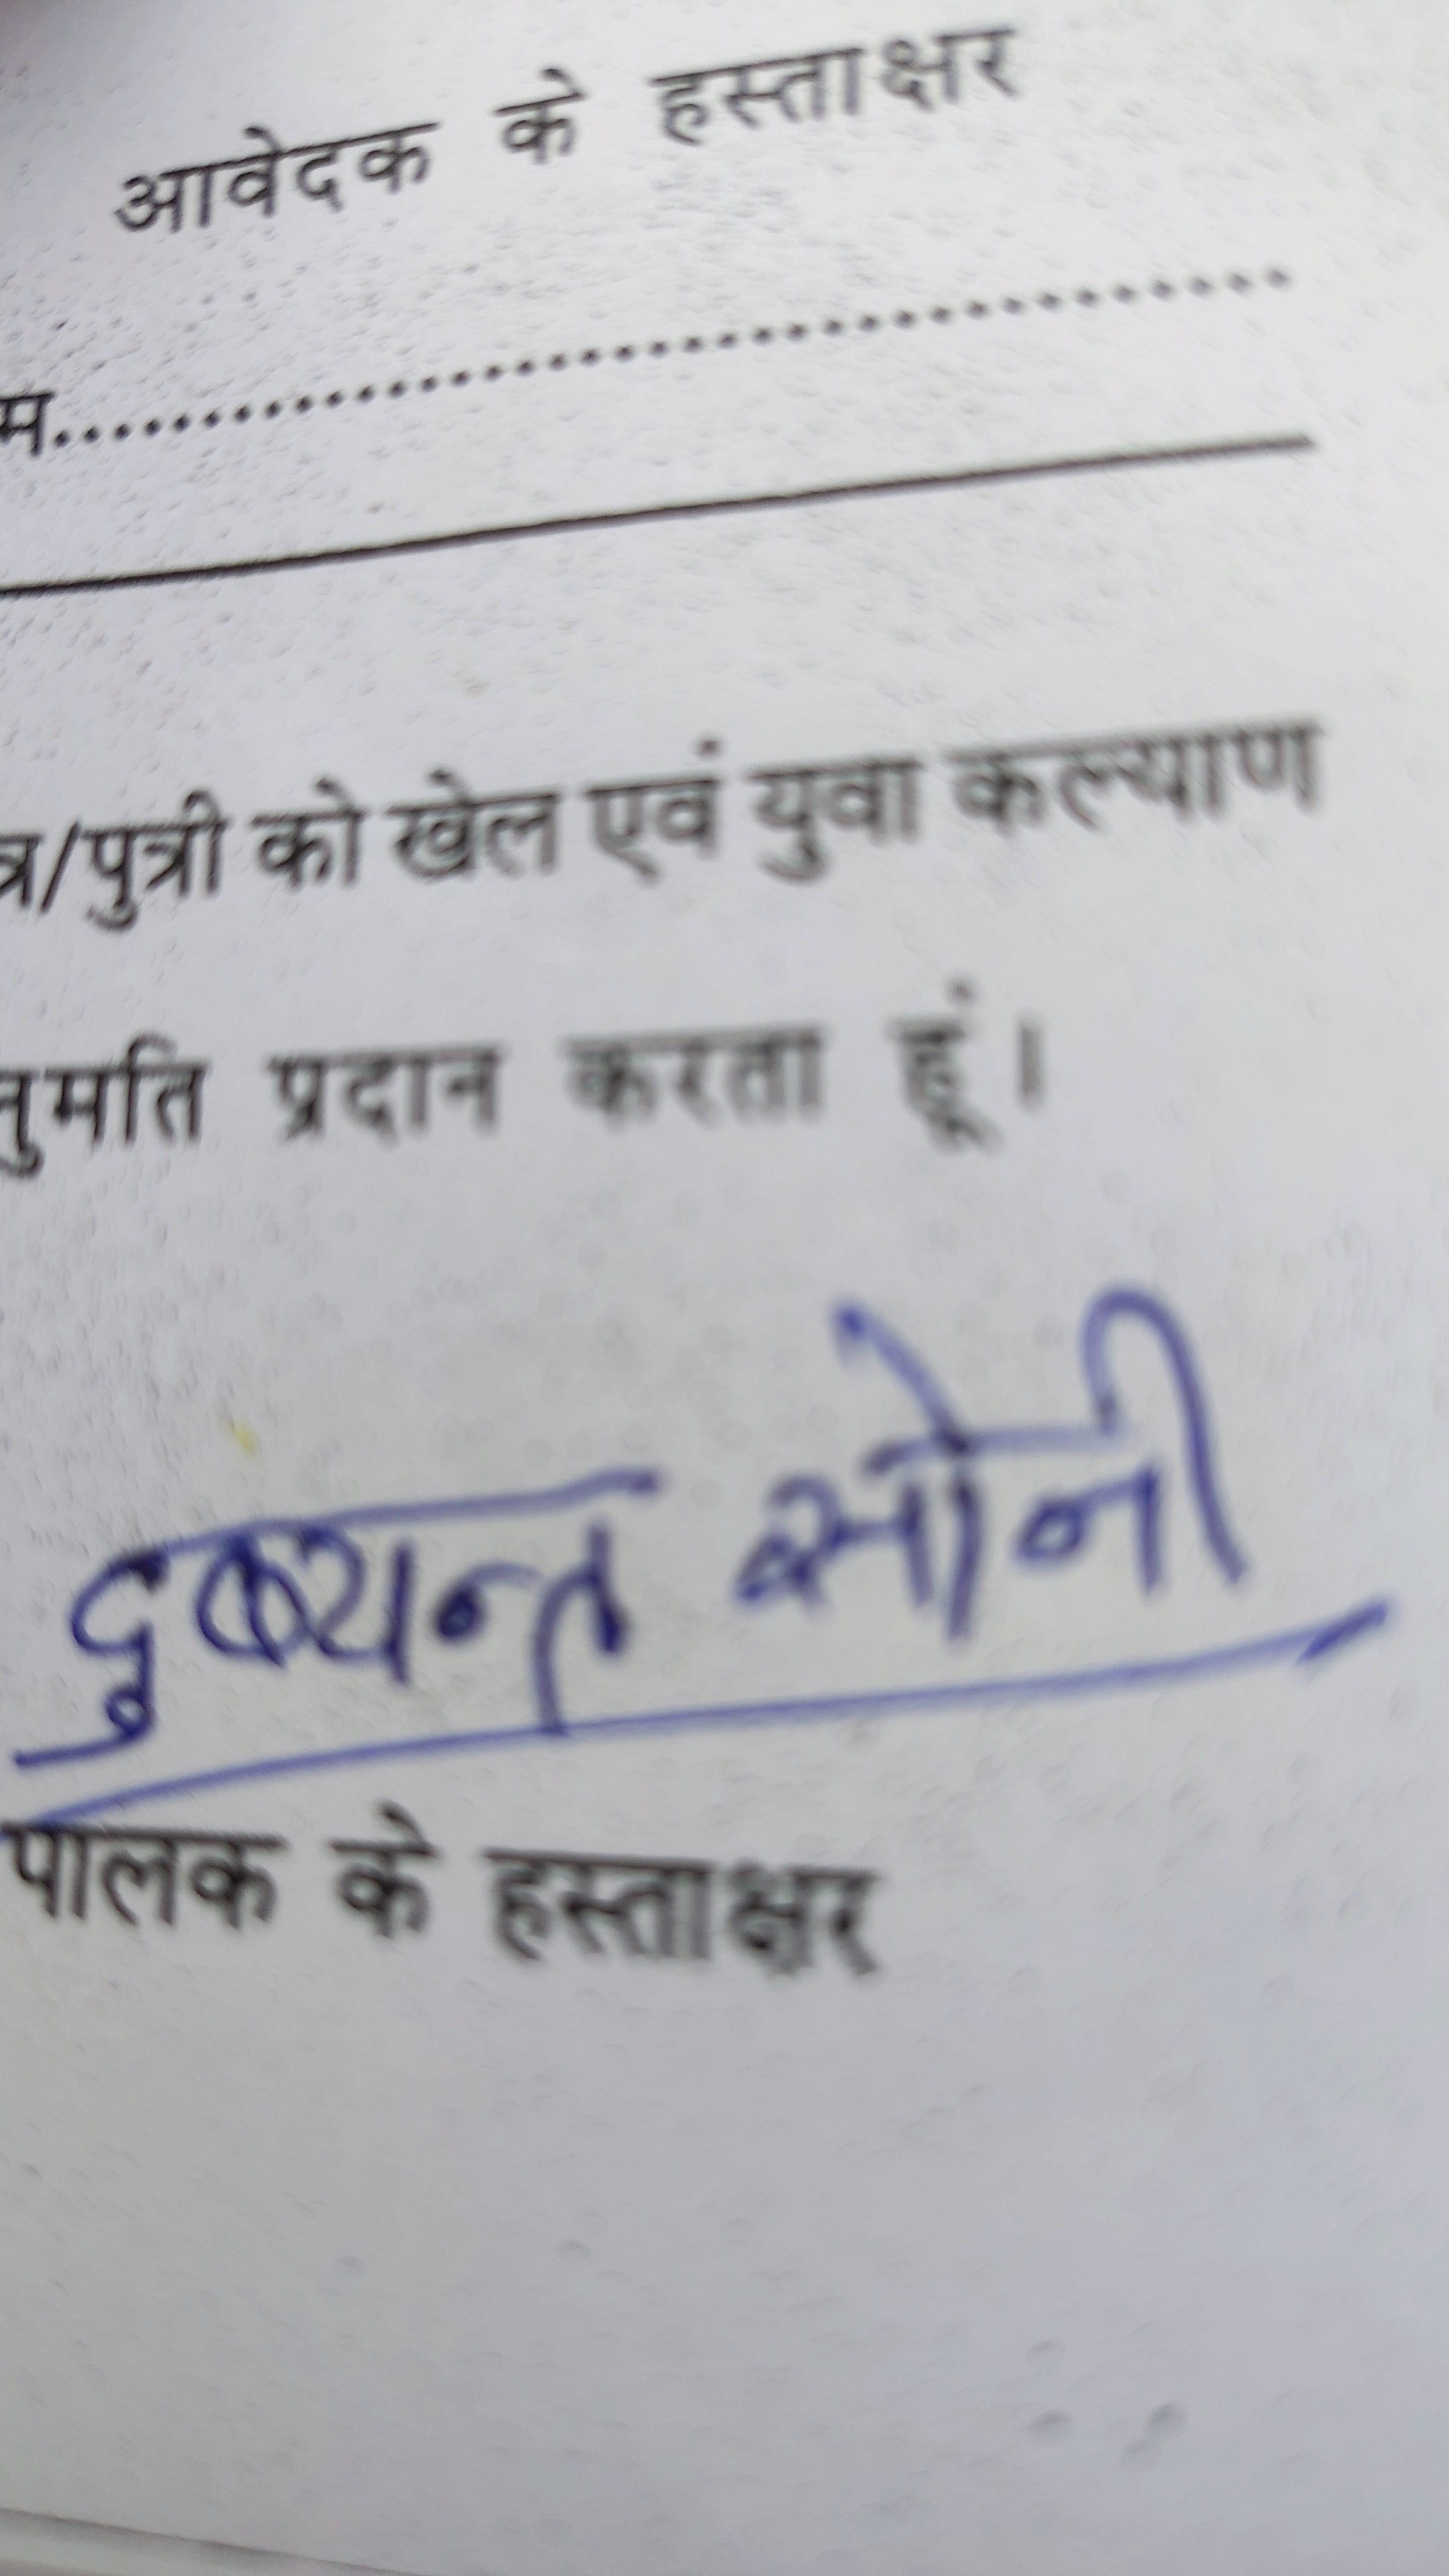 आवेदक के हस्ताक्षर
म......................................
त्र/पुत्री को खेल एवं युवा कल्याण
नुमति प्रदान करता हूं।
दुष्यन्त सोनी
पालक के हस्ताक्षर